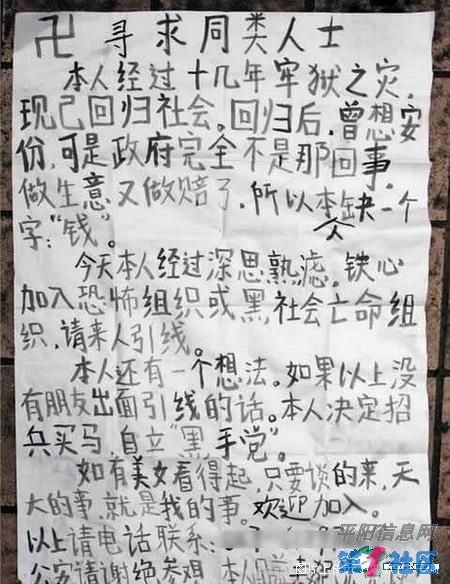 卍寻求同类人士
本人经过十几年牢狱之灾,
现已回归社会。回归后,曾想安
份,可是政府完全不是那回事,
做生意又做赔了,所以本人缺一个
字:“钱”。
今天本人经过深思熟虑,铁心
加入恐怖组织或黑社会亡命组
织,请来人引线。
本人还有一个想法。如果以上没
有朋友出面引线的话。本人决定招
兵买马,自立“黑手党”。
如有美女看得起,只要谈的来,天
大的事,就是我的事。欢迎加入。
以上请电话联系:
公安请谢绝参观,本人
平阳信息网
第1社区